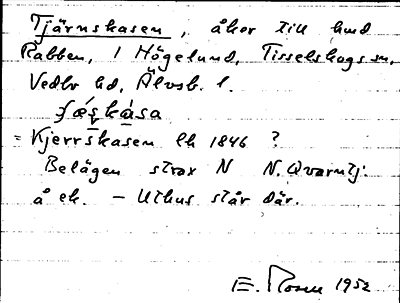 Tjärnskasen, åker till hmd
Rabben, 1 Högelund, Tisselskogs sn,
Vedbo hd, Älvsb. l.
= Kjerrskasen Lk 1846 ?
Belägen strax N N. Qvarntj.
å ek. – Uthus står där.
E. Rosen 1952